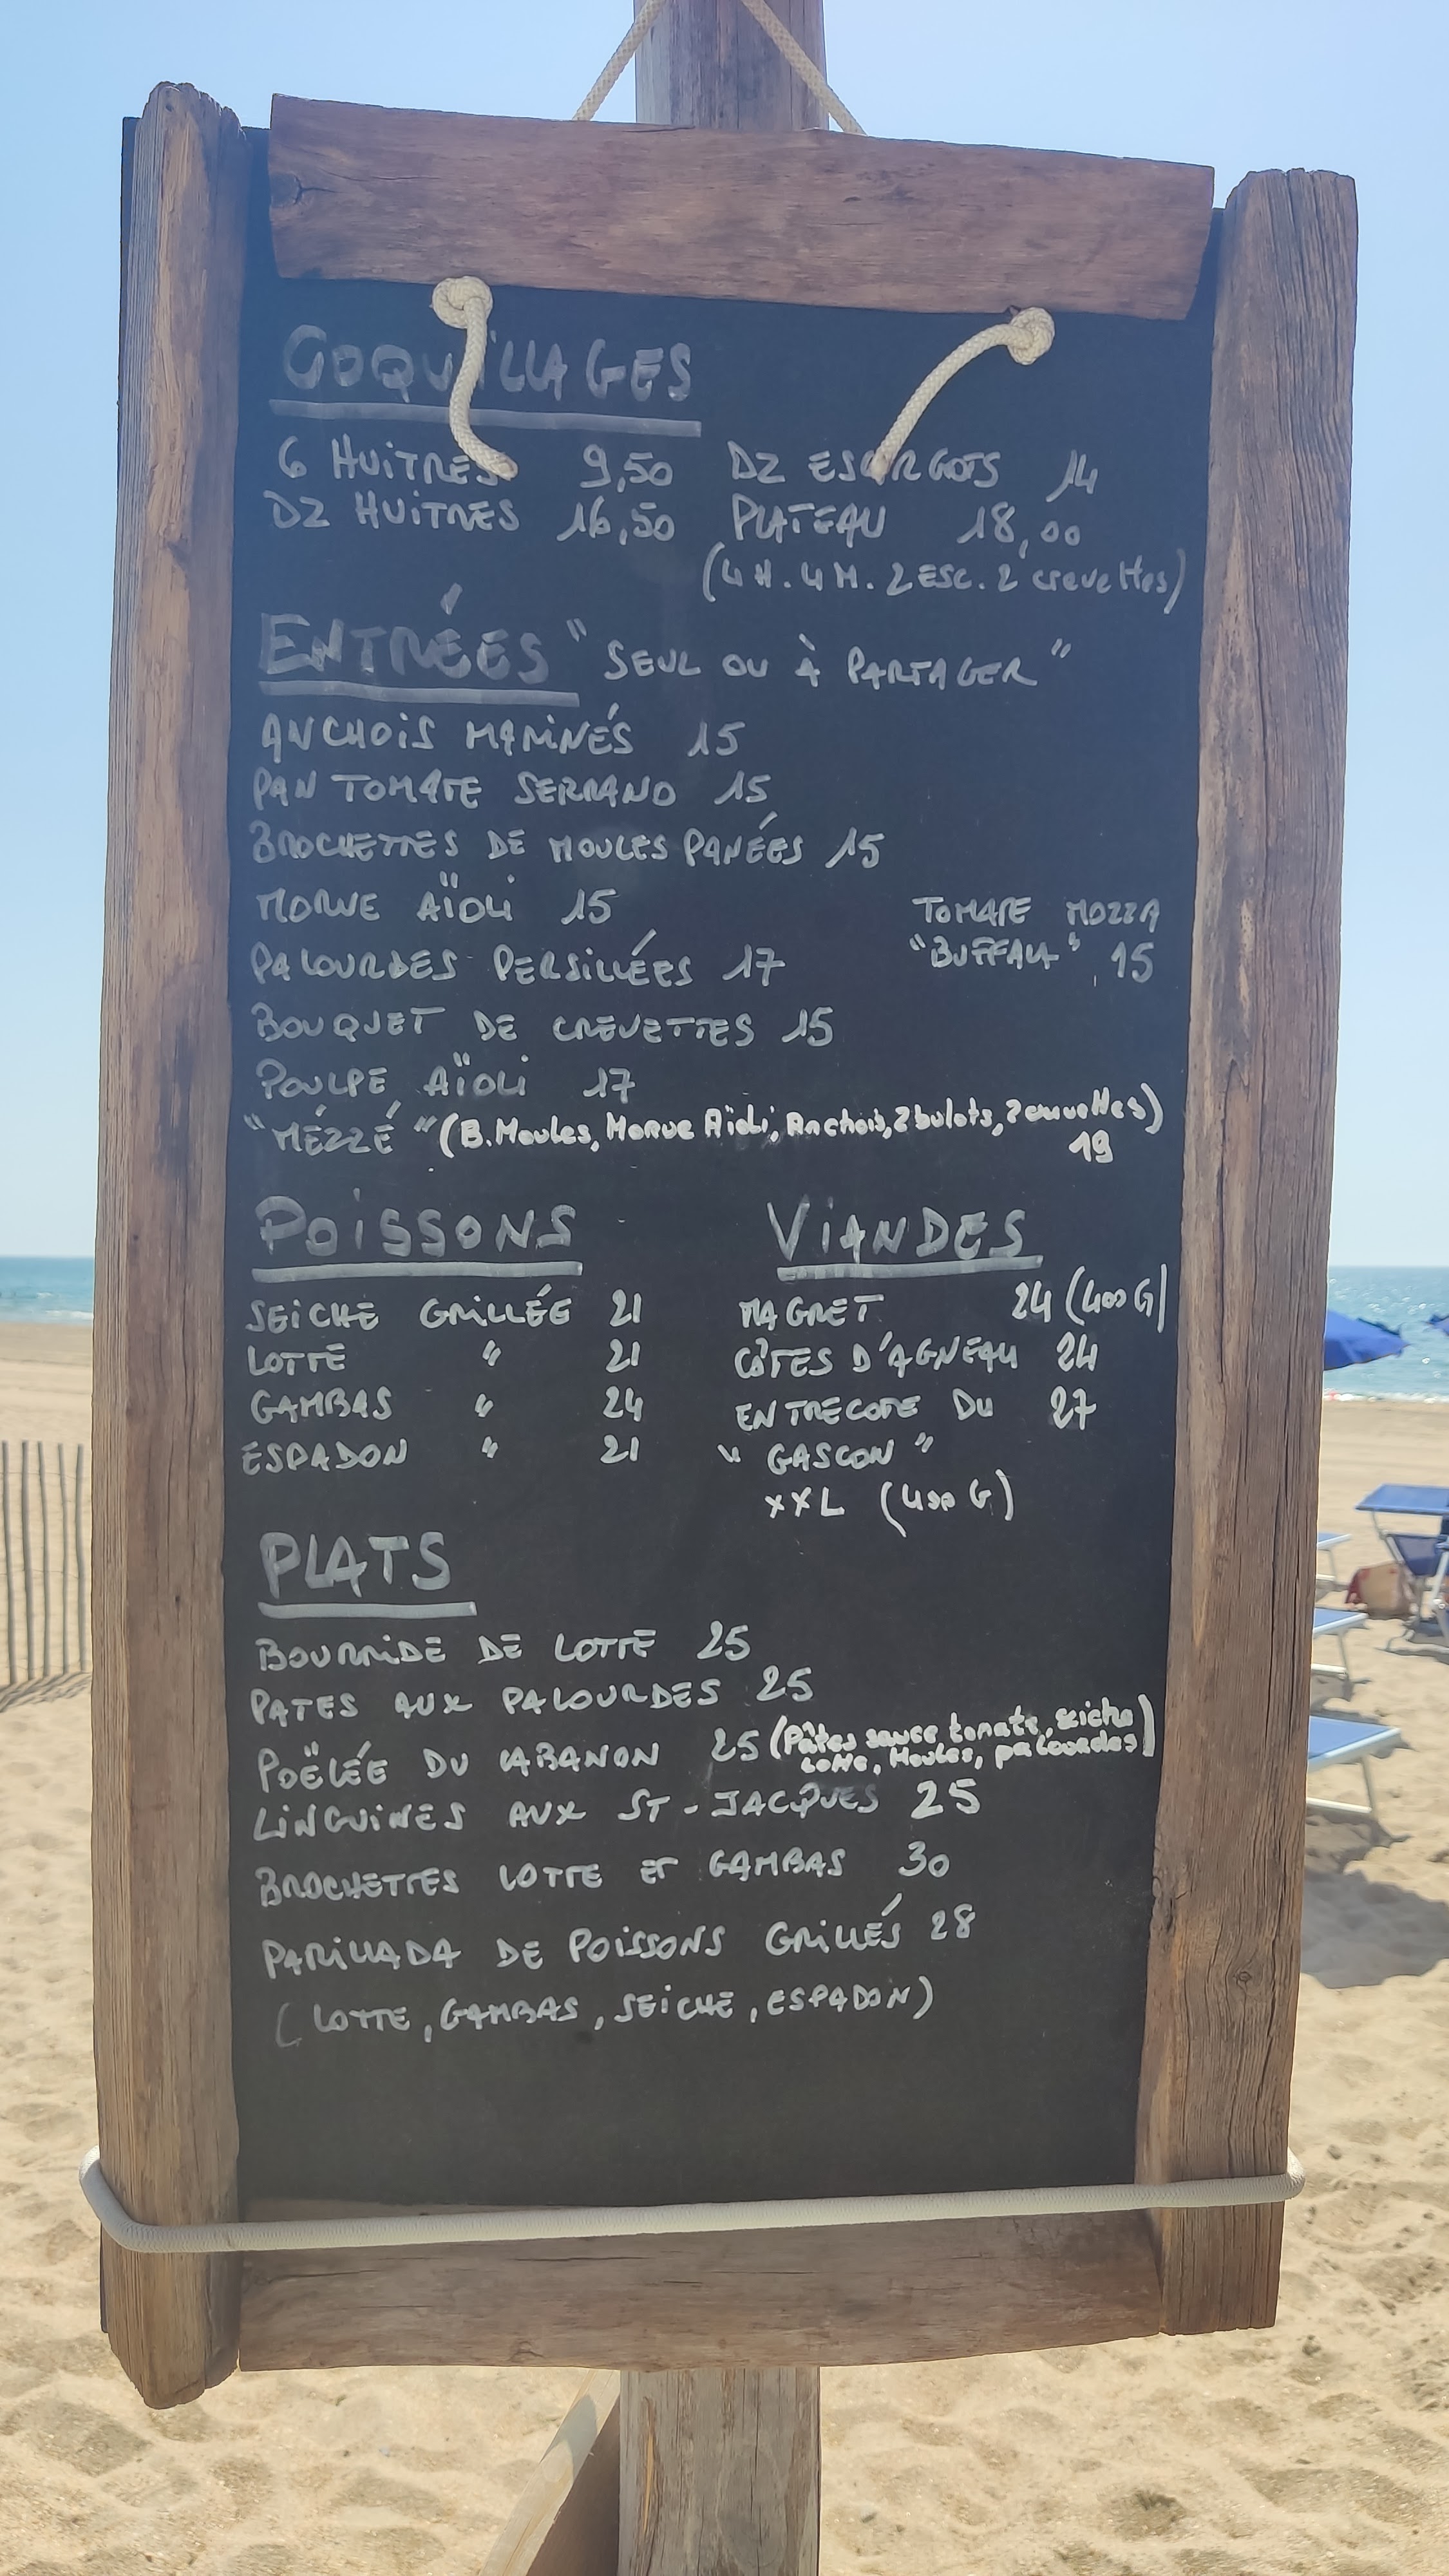 COQUILLAGES
6 HUITRES 9,50 DZ ESCARGOTS 14
DZ HUITRES 16,50 PLATEAU 18,00
(4 H. 4 M. 2 ESC. 2 crevettes)
ENTRÉES " SEUL OU À PARTAGER "
ANCHOIS MARINÉS 15
PAN TOMATE SERRANO 15
BROCHETTES DE MOULES PANÉES 15
MORUE AÏOLI 15
TOMATE MOZZA
"BUFFALA" 15
PALOURDES PERSILLÉES 17
BOUQUET DE CREVETTES 15
POULPE AÏOLI 17
"MÉZZÉ" (B.Moules, Morue Aïoli, Anchois, 2 bulots, 2 crevettes)
19
POISSONS
SEICHE GRILLÉE 21
LOTTE " 21
GAMBAS " 24
ESPADON " 21
VIANDES
MAGRET 24 (400 G)
CÔTES D'AGNEAU 24
ENTRECOTE DU 27
" GASCON "
XXL (400 G)
PLATS
BOURRIDE DE LOTTE 25
PATES AUX PALOURDES 25
POËLÉE DU CABANON 25 (Pâtes sauce tomate, seiche
Lotte, Moules, palourdes)
LINGUINES AUX ST-JACQUES 25
BROCHETTES LOTTE ET GAMBAS 30
PARILLADA DE POISSONS GRILLÉS 28
(LOTTE, GAMBAS, SEICHE, ESPADON)